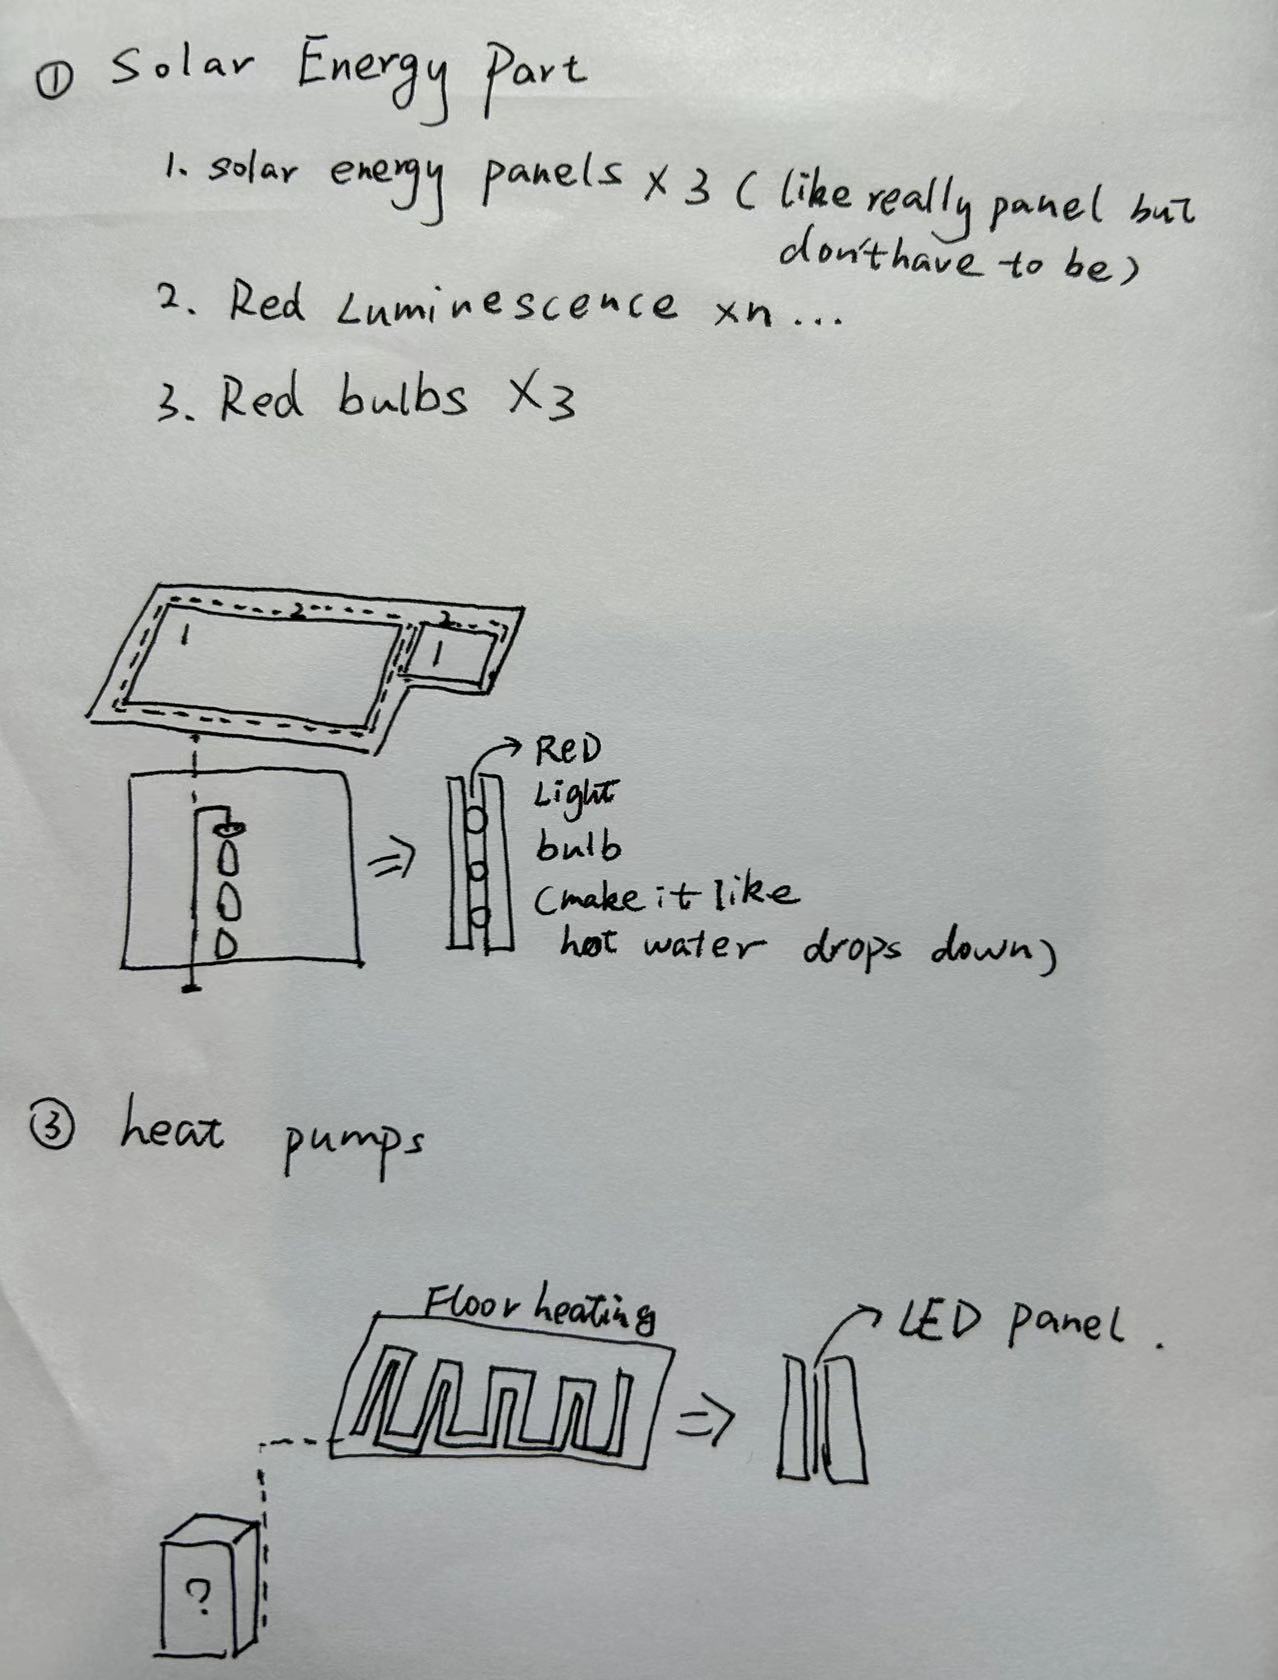 ① Solar Energy Part
1. solar energy panels × 3 ( like really panel but
don't have to be)
2. Red Luminescence xn ...
3. Red bulbs X3
2 2
1 1
ReD
Light
bulb
(make it like
hot water drops down)
③ heat pumps
Floor heating
LED panel.
?